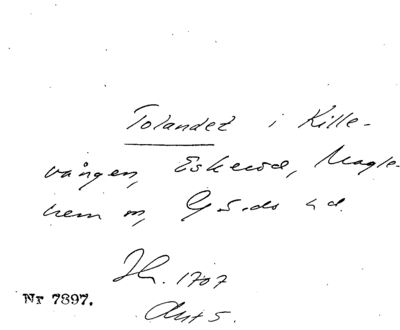 Tolandet i Kille-
vången, Eskeröd, Magle-
hem sn, G-ds hd.
1707
Nr 7897.
Akt 5.